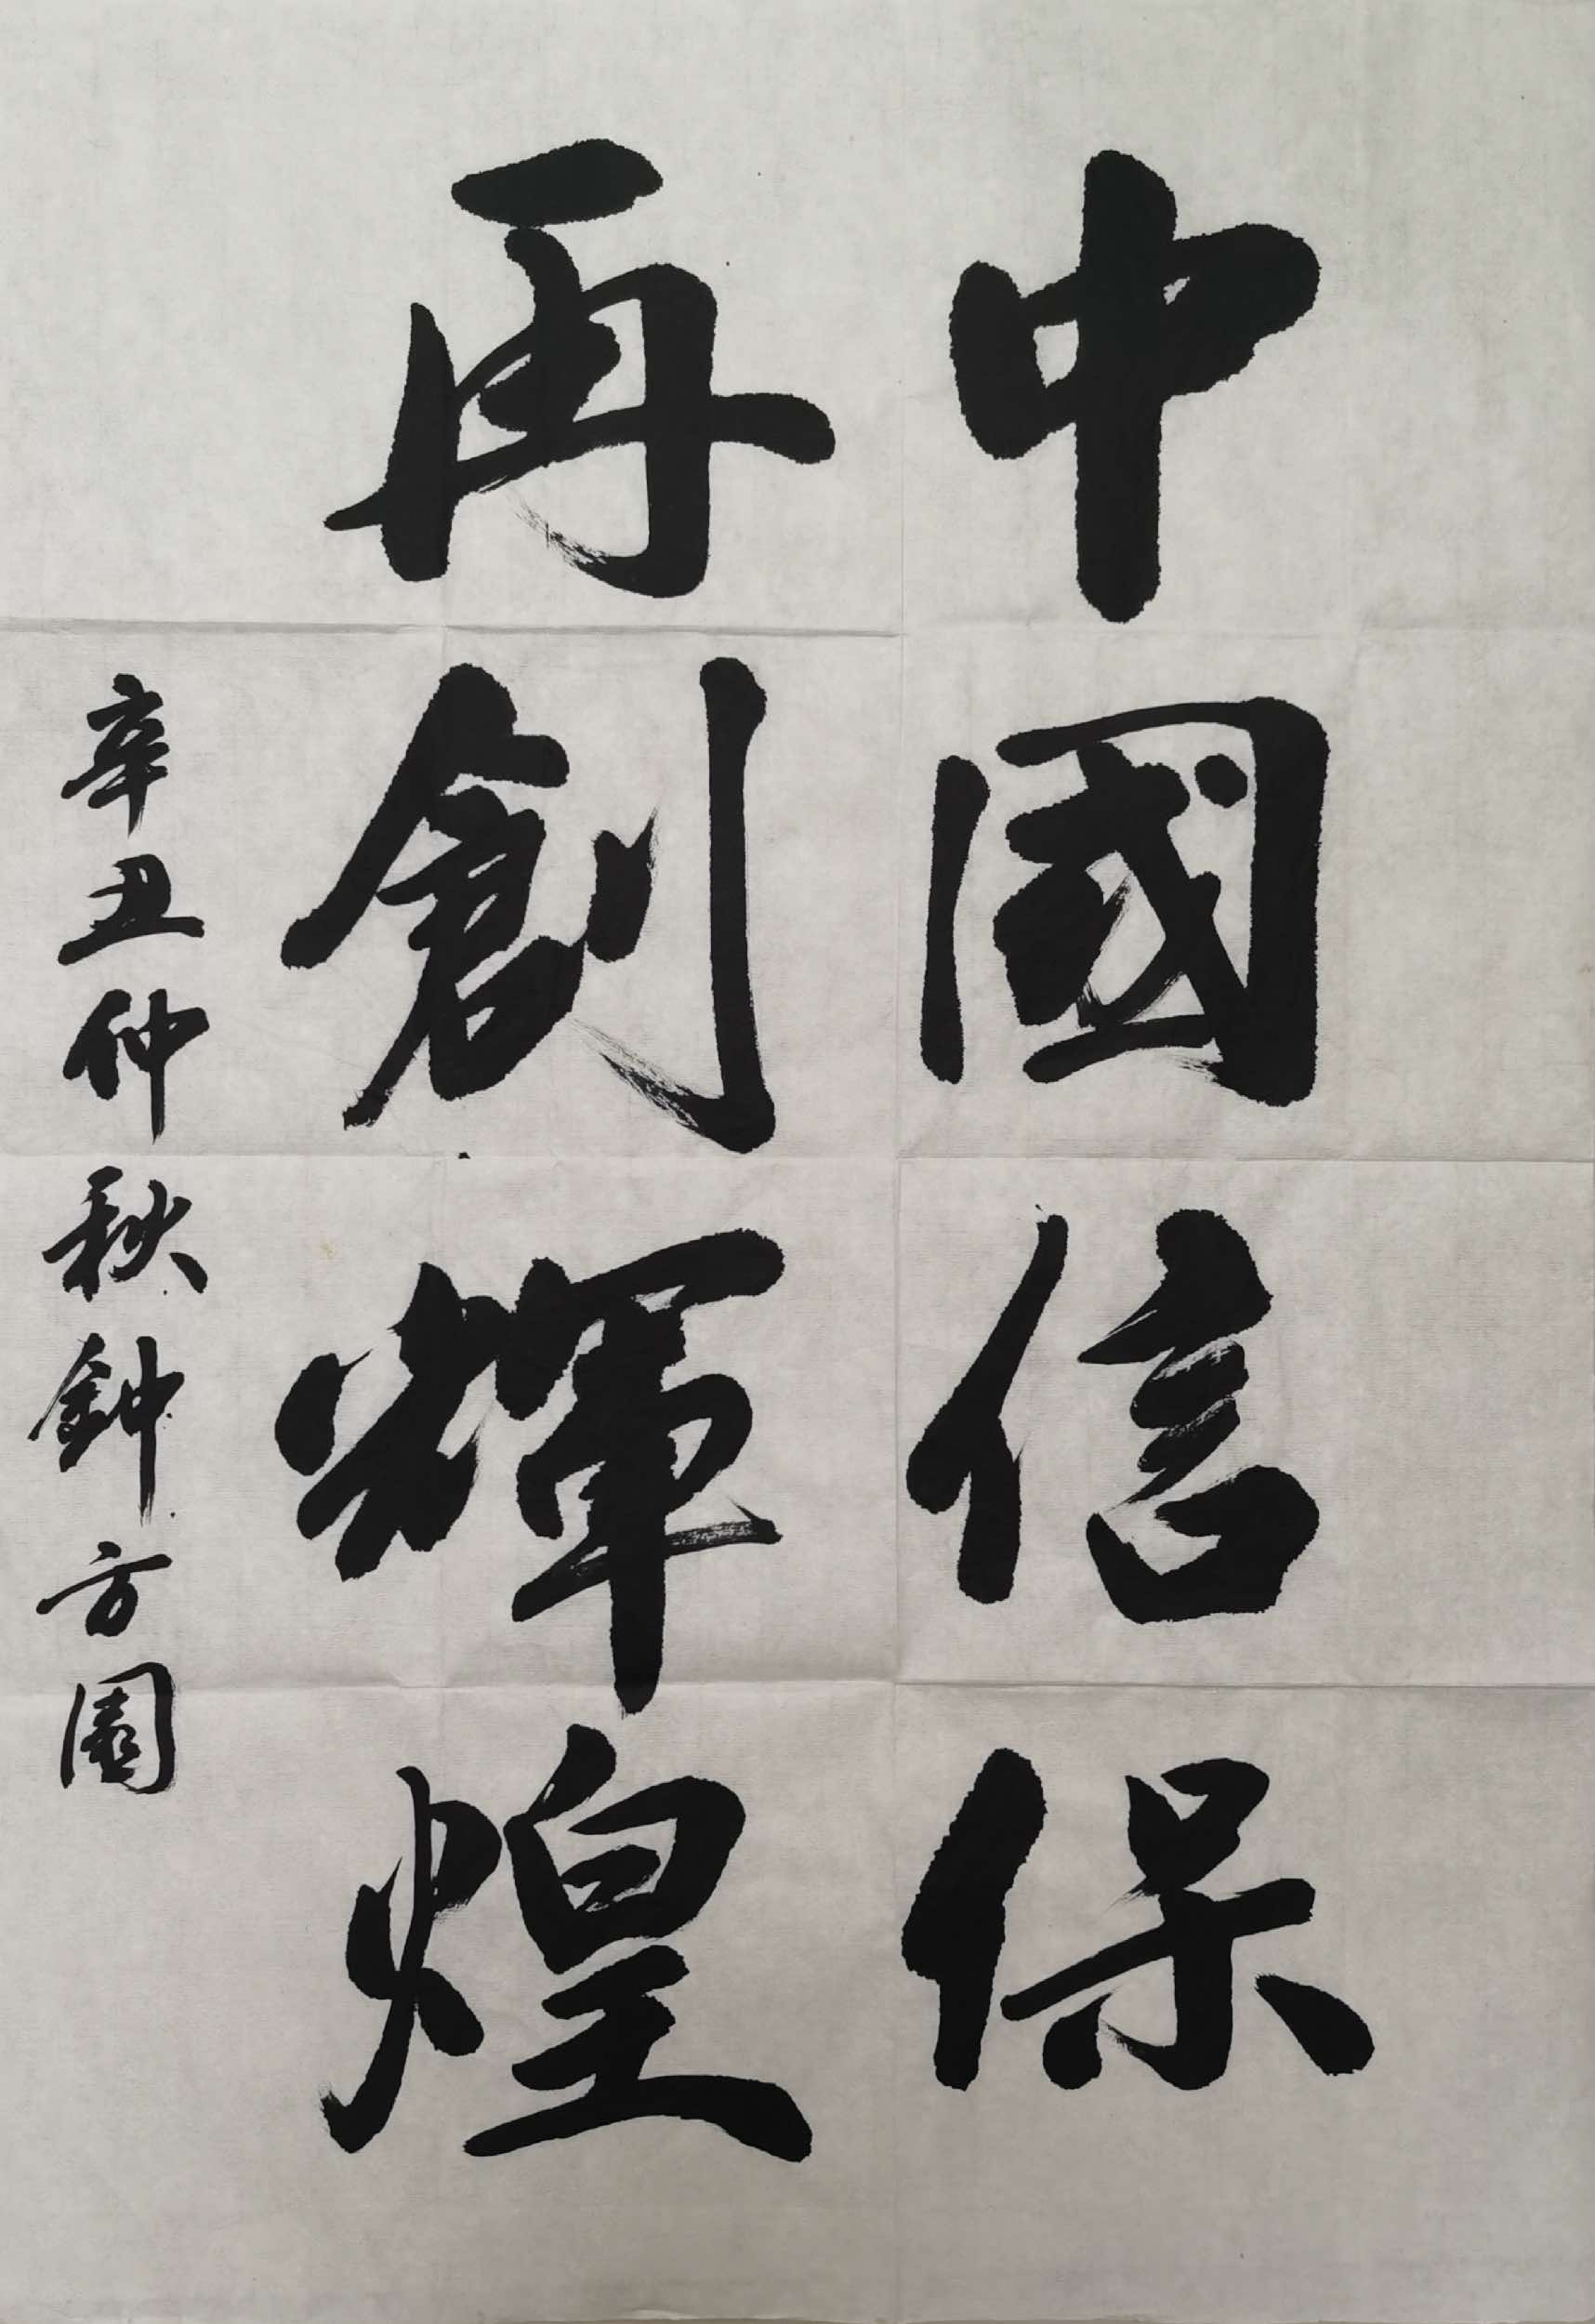 中國信保
再創輝煌
辛丑仲秋鈡方園